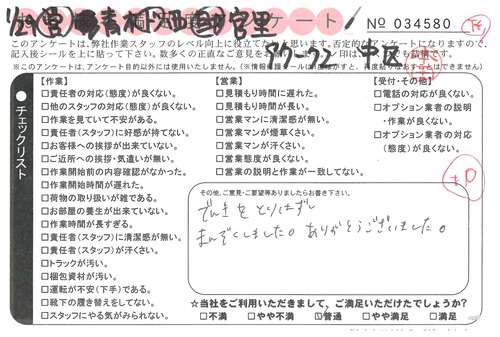 アンケート
No 034580
このアンケートは、弊社作業スタッフのレベル向上に役立てたいと思います。否定的なアンケートになりますので、
【作業】
□責任者の対応(態度)が良くない。
□他のスタッフの対応(態度)が良くない。
□作業を見ていて不安がある。
□責任者(スタッフ)に好感が持てない。
□お客様への挨拶が出来ていない。
□ご近所への挨拶・気遣いが無い。
□作業開始前の内容確認がなかった。
□作業開始時間が遅れた。
□荷物の取り扱いが雑である。
□お部屋の養生が出来ていない。
□作業時間が長すぎる。
□責任者(スタッフ)に清潔感が無い。
□責任者(スタッフ)が汗くさい。
□トラックが汚い。
□梱包資材が汚い。
□運転が不安(下手)である。
□靴下の履き替えをしてない。
□スタッフにやる気がみられない。
【営業】
□見積もり時間に遅れた。
□見積もり時間が長い。
□営業マンに清潔感が無い。
□営業マンが煙草くさい。
□営業マンが汗くさい。
□営業態度が良くない。
□営業の説明と作業が一致してない。
【受付・その他】
□電話の対応が良くない。
□オプション業者の説明
・作業が良くない。
□オプション業者の対応
(態度)が良くない。
チェックリスト
その他、ご意見・ご要望等ありましたらお書き下さい。
でんきをとりはずし
まんぞくしました。ありがとうございました。
☆当社をご利用いただきまして、ご満足いただけたでしょうか?
□不満 □やや不満 □普通 □やや満足 □満足